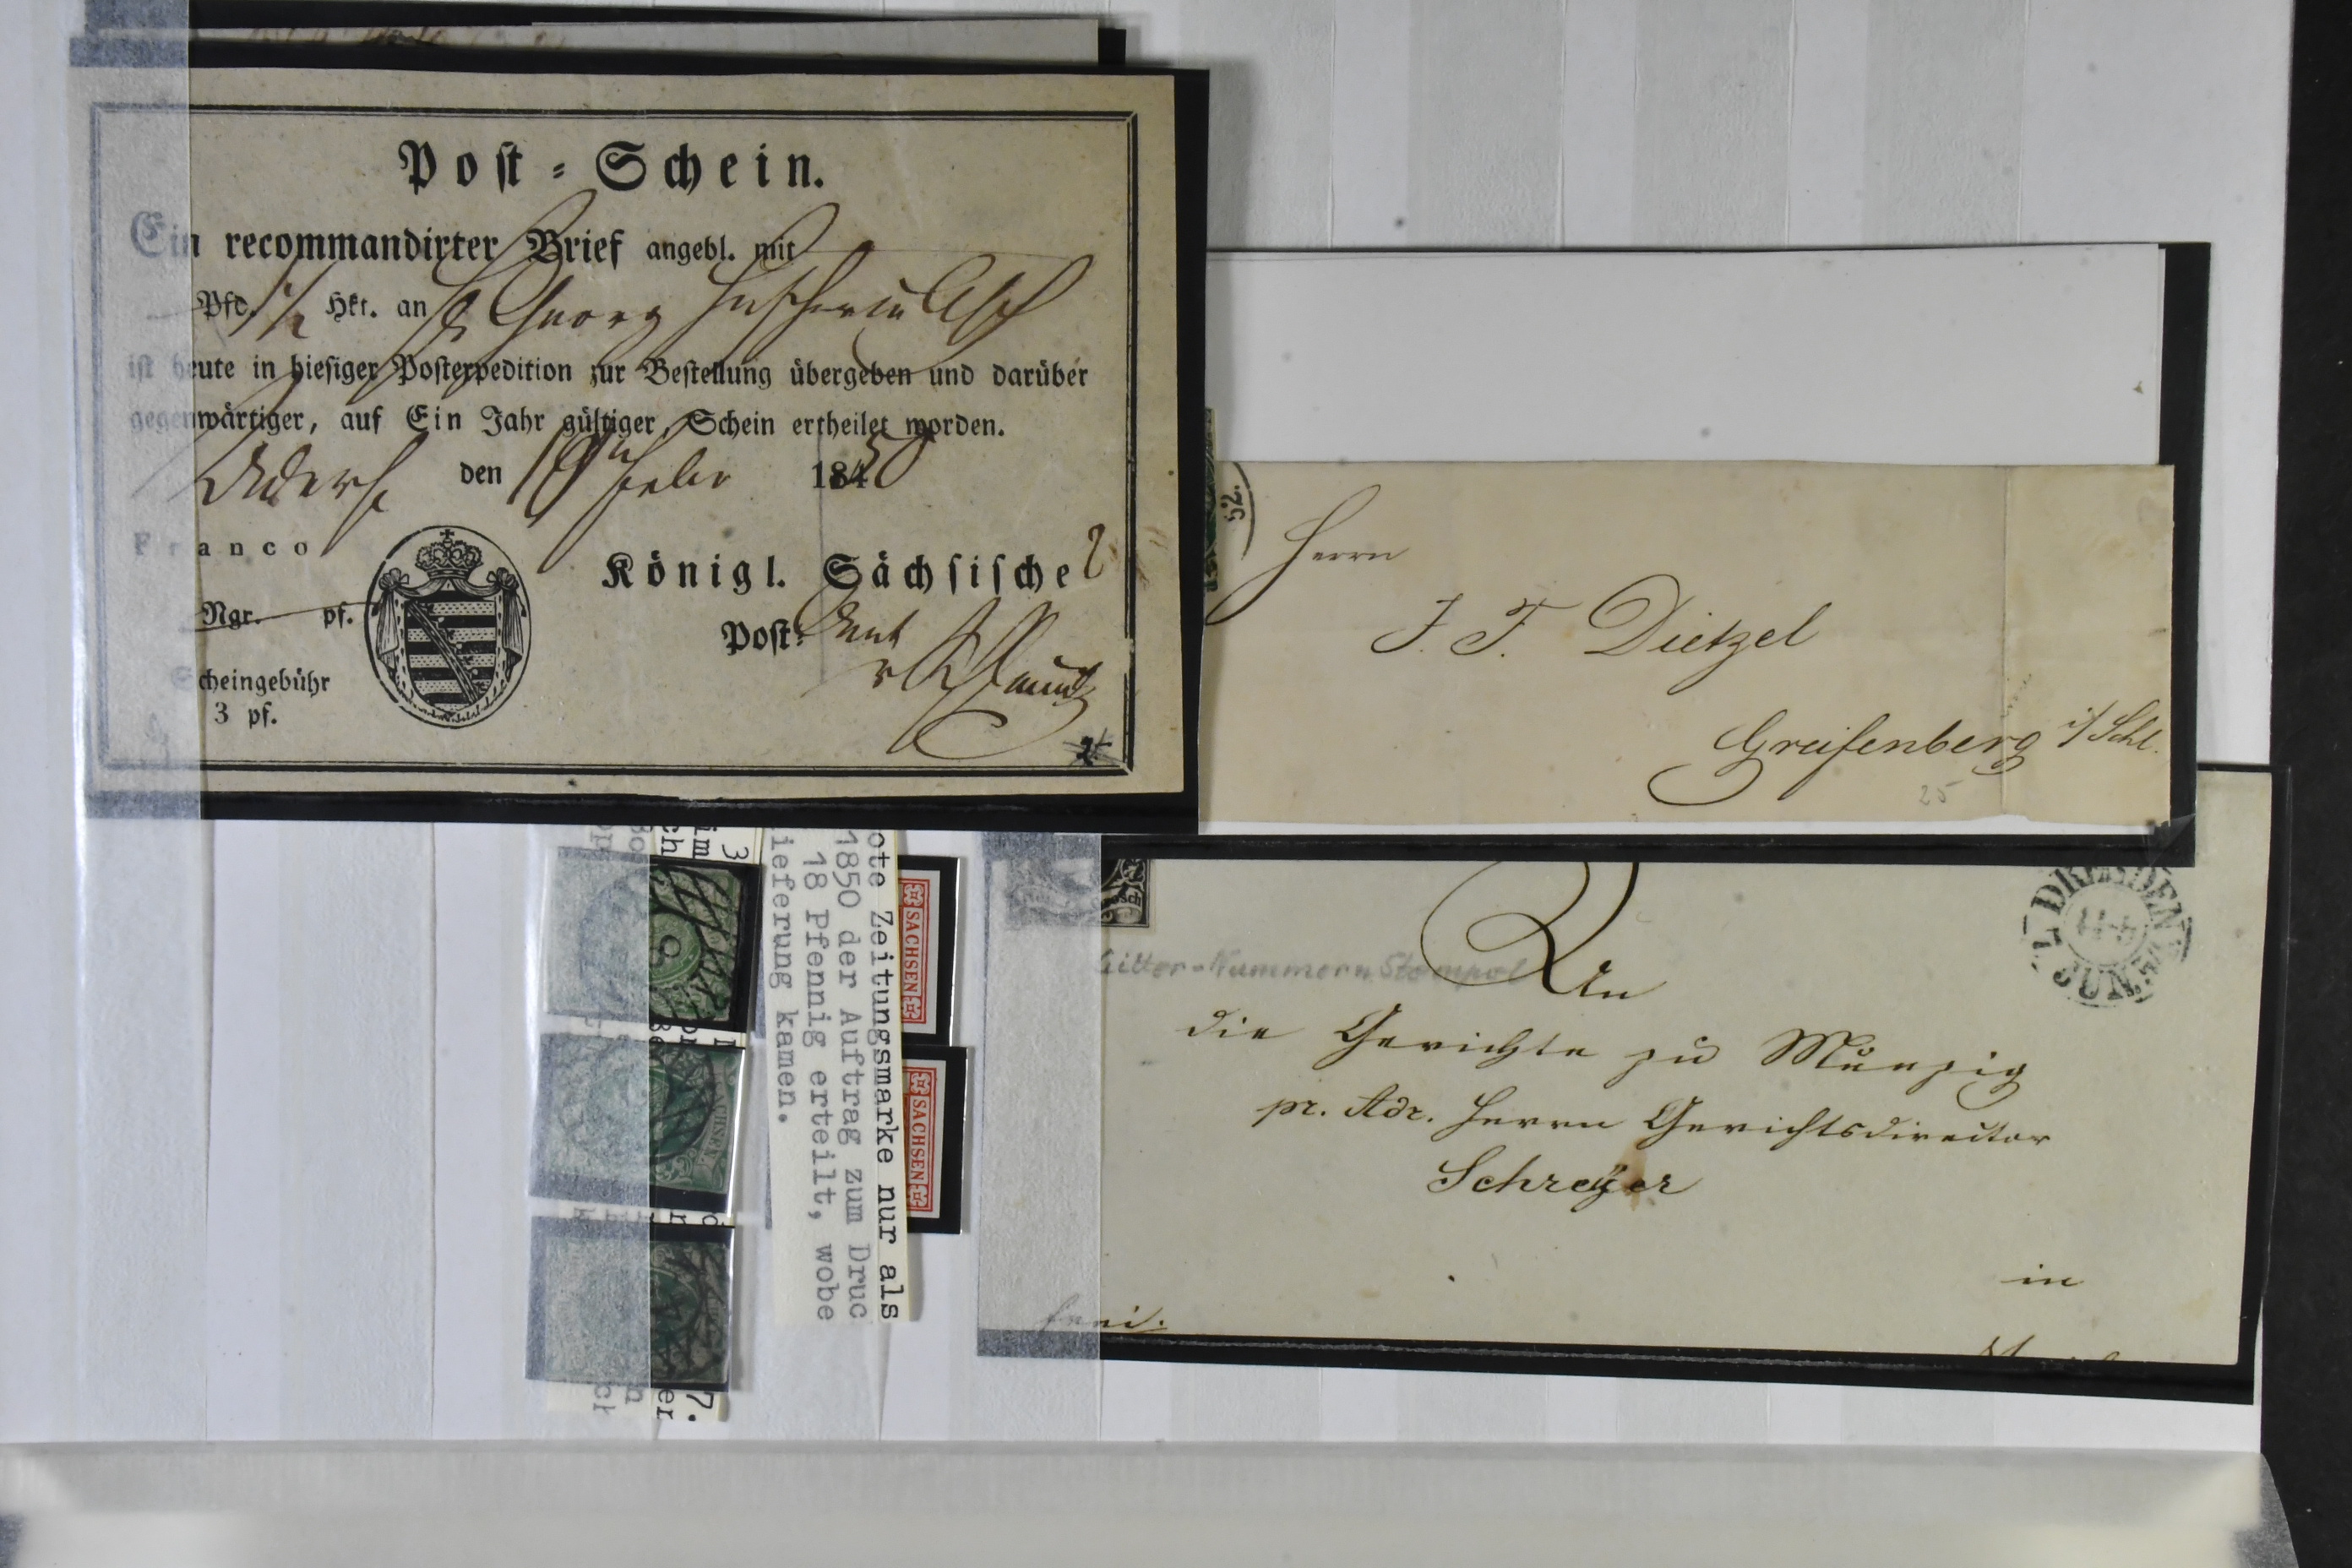 Post-Schein.
Ein recommandirter Brief angebl. mit
Pfd. 1/2 Hkt. an Georg
ist heute in hiesiger Postexpedition zur Bestellung übergeben und darüber
gegenwärtiger, auf Ein Jahr gültiger, Schein ertheilet worden.
Adorf den 19 Febr 1850
Franco
Königl. Sächsische
Ngr. pf.
Post-Amt
Scheingebühr
3 pf.
52.
Herrn
J. F. Dietzel
Greifenberg i/Schl.
25
ote Zeitungsmarke nur als
1850 der Auftrag zum Druc
18 Pfennig erteilt, wobe
ieferung kamen.
SACHSEN
SACHSEN
SACHSEN
8
DRESDEN
7 JUN.
Gitter-Nummern Stempel
An
die Gerichte zu Munzig
pr. Adr. Herrn Gerichtsdirector
Schreÿer
in
frei.